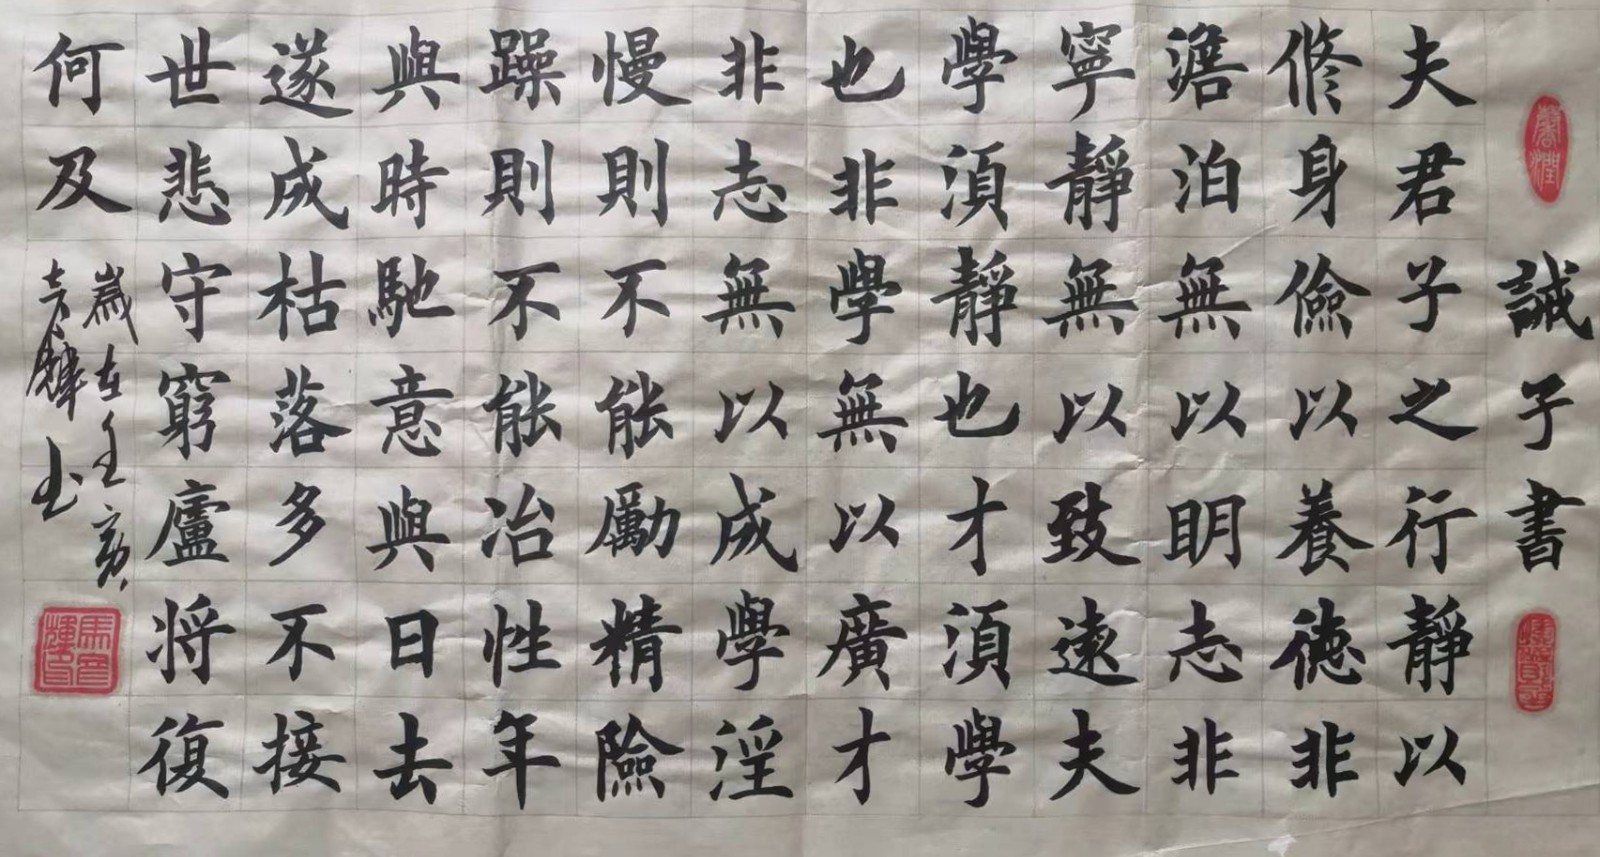 誡子書
夫君子之行靜以
修身儉以養德非
澹泊無以明志非
寧靜無以致遠夫
學須靜也才須學
也非學無以廣才
非志無以成學淫
慢則不能勵精險
躁則不能冶性年
與時馳意與日去
遂成枯落多不接
世悲守窮廬將復
何及